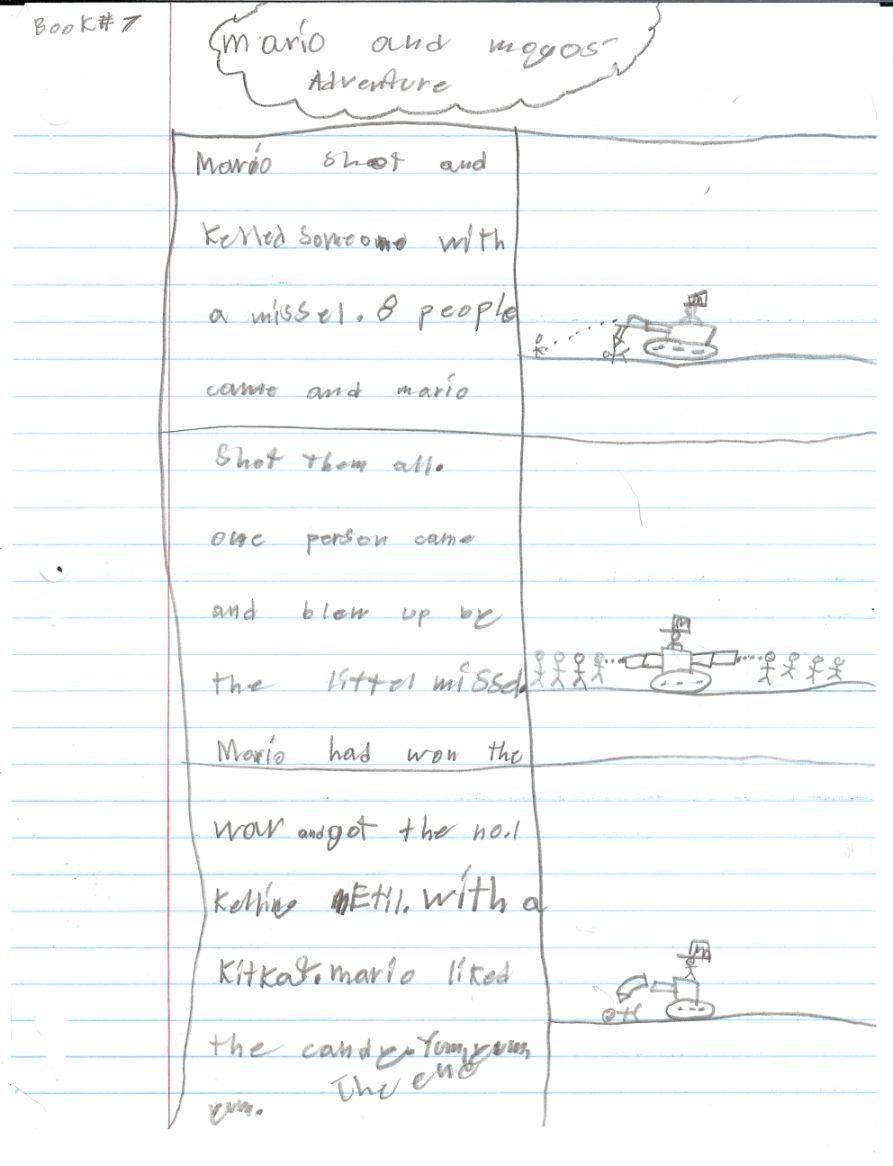 Book#7
mario and moyos
Adventure
Mario shot and
Kelled someone with
a missel. 8 people
came and mario
Shot them all.
one person came
and blew up by
the littel missel.
Mario had won the
war and got the no.1
Kelling mEtil. with a
Kitkat. mario liked
the candy. Yum, yum,
yum.
The end